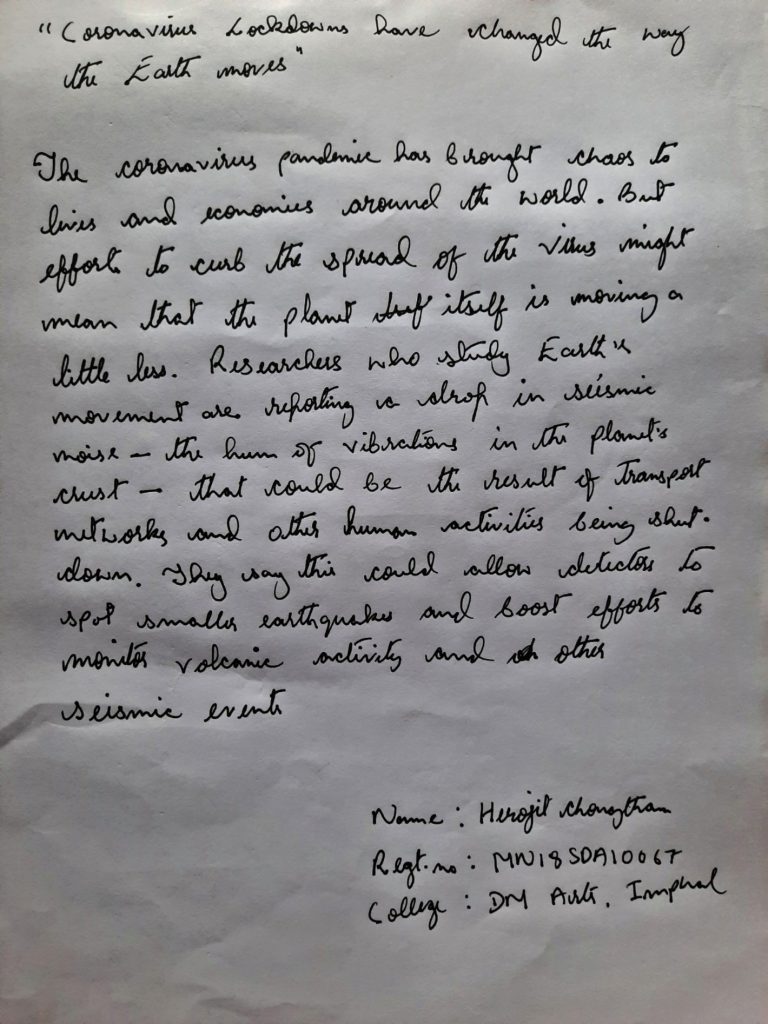 "Coronavirus Lockdowns have changed the way
the Earth moves"
The coronavirus pandemic has brought chaos to
lives and economies around the world. But
efforts to curb the spread of the virus might
mean that the planet itself is moving a
little less. Researchers who study Earth's
movement are reporting a drop in seismic
noise – the hum of vibrations in the planet's
crust – that could be the result of transport
networks and other human activities being shut-
down. They say this could allow detectors to
spot smaller earthquakes and boost efforts to
monitor volcanic activity and other
seismic events
Name : Herojit Chongtham
Regt.no : MN18SDA10067
College : DM Arts, Imphal